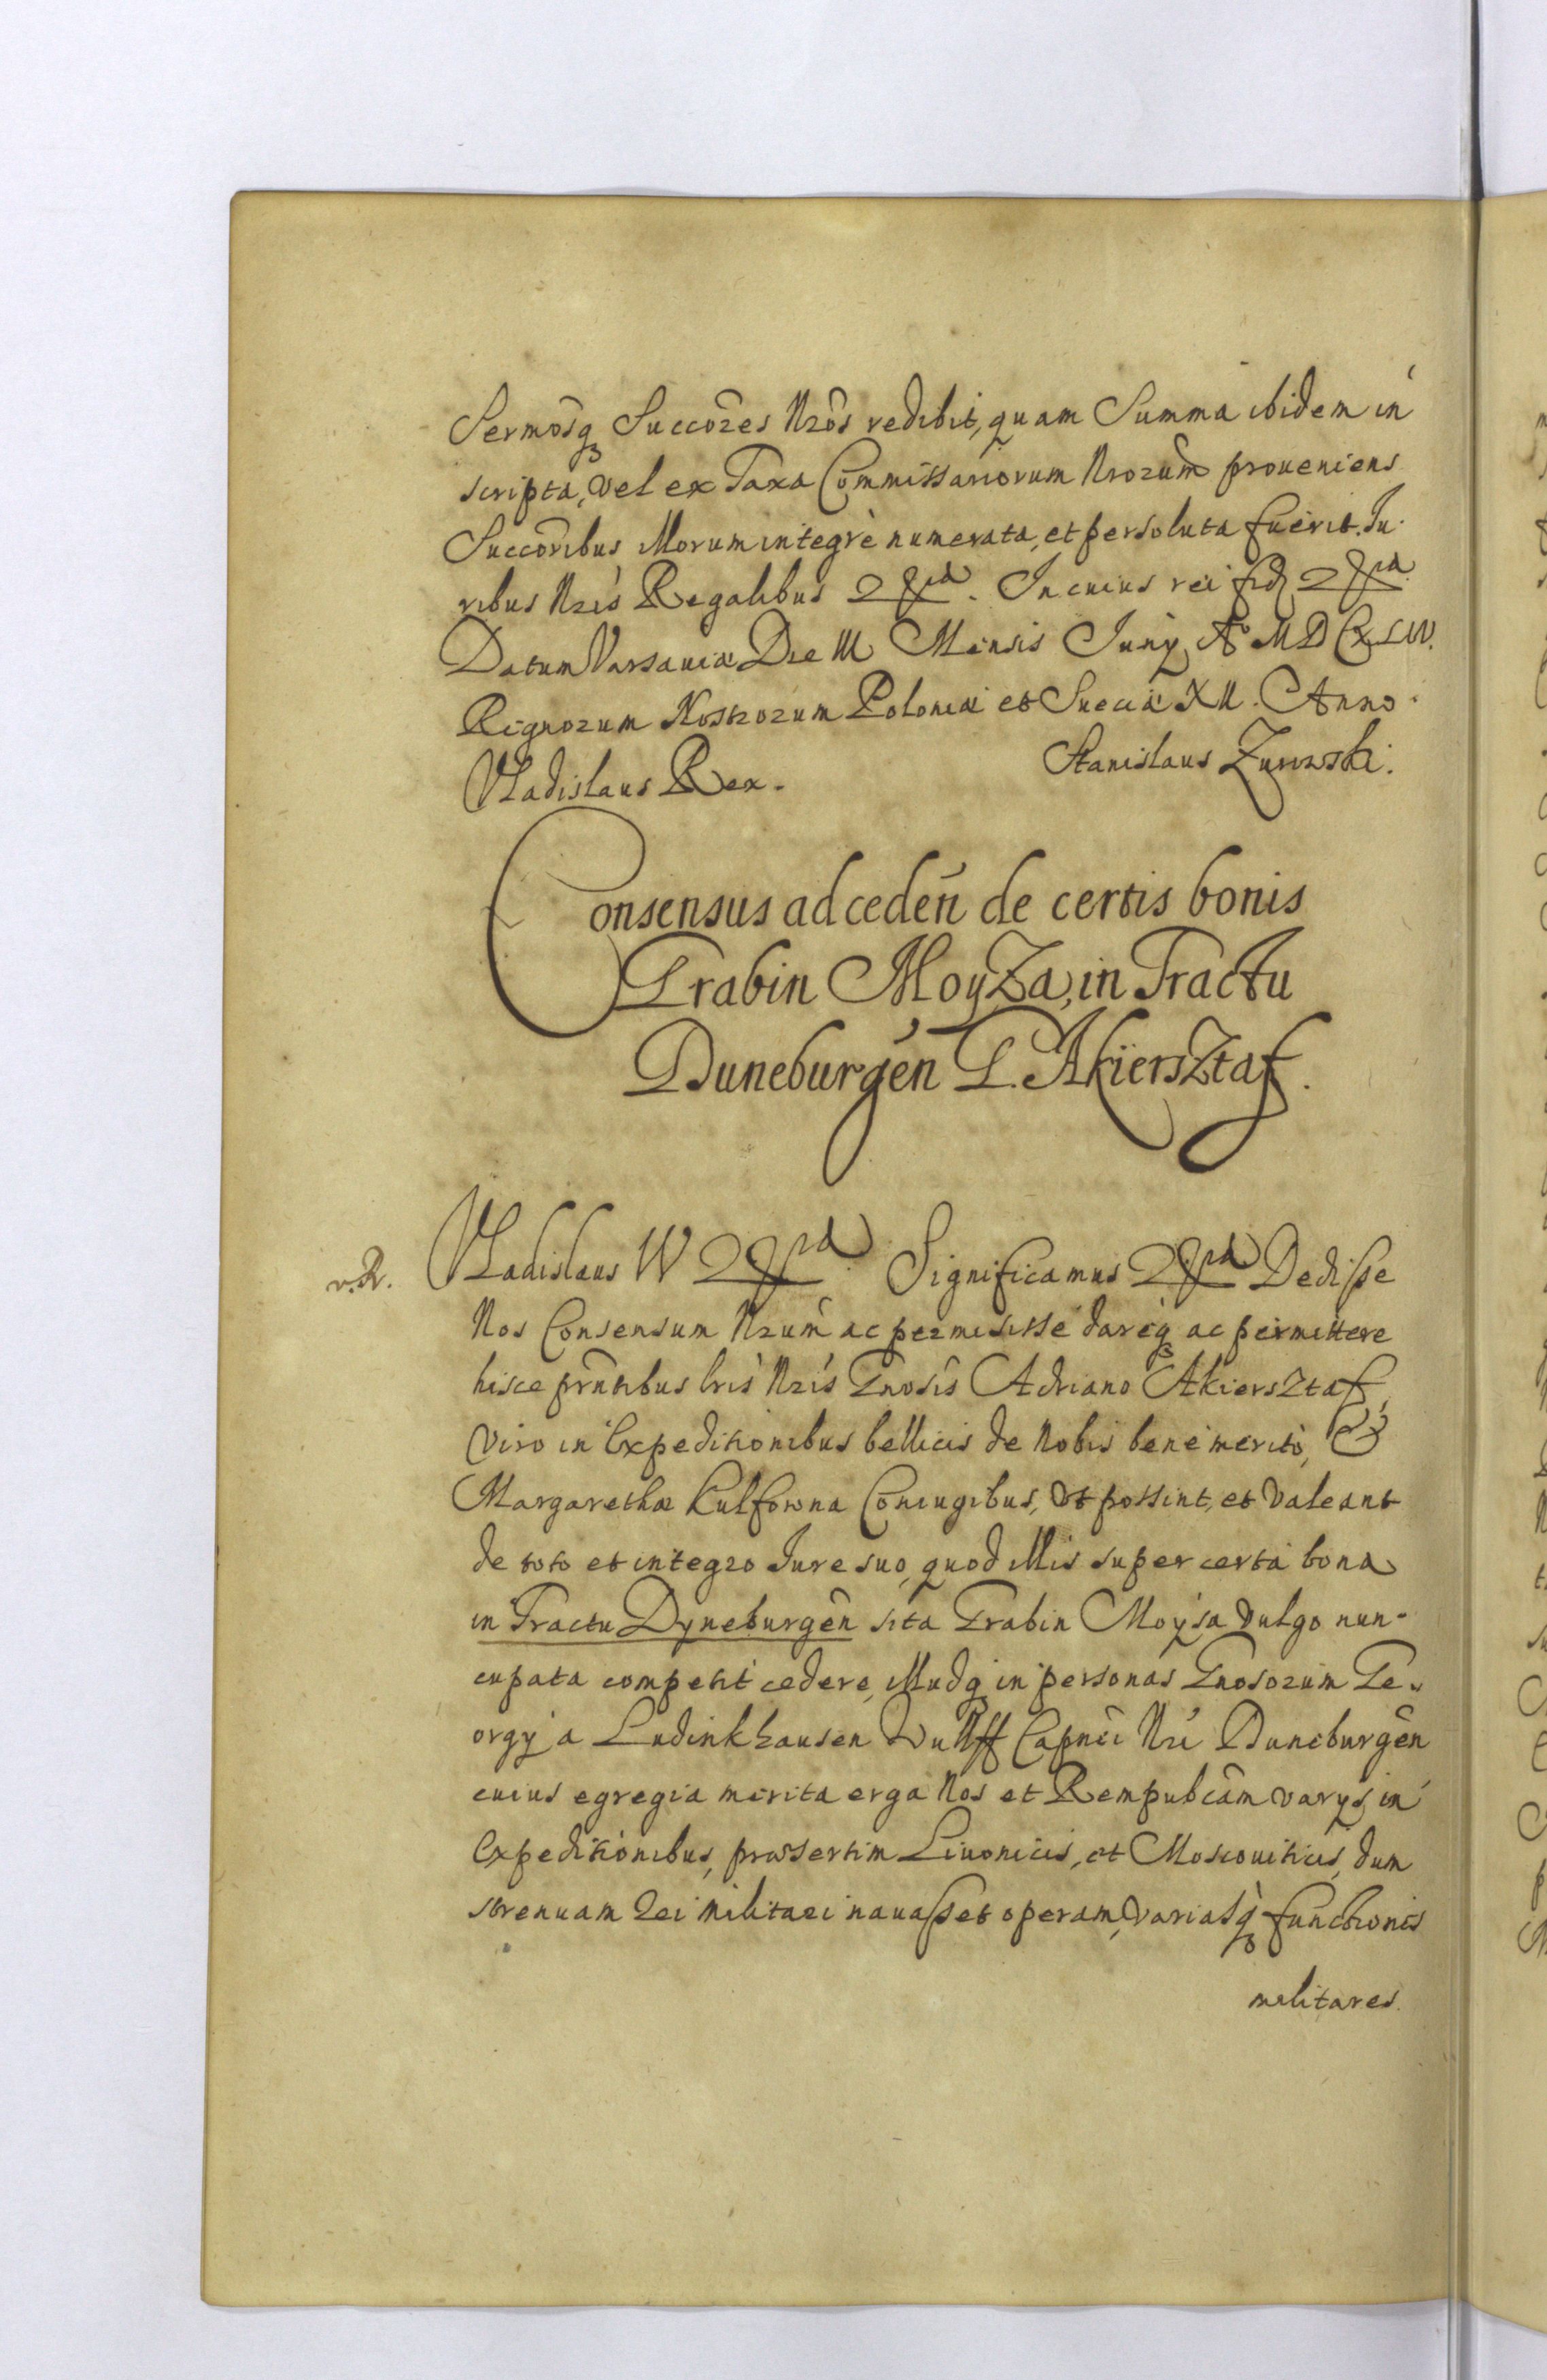 Sermosq Succores Nros redibit, quam Summa ibidem in
scripta, vel ex Taxa Commissariorum Nrorum proueniens
Succoribus illorum integrè numerata, et persoluta fuerit. Iu-
ribus Nris Regalibus In cuius rei fid
Datum Varsauiæ Die III Mensis Iunÿ A° MDCXLIV.
Regnorum Nostrorum Poloniæ et Sueciæ XII. Anno.
Vladislaus Rex. Stanislaus Zurowski.
Consensus ad ceden de certis bonis
Grabin MoyZa, in Tractu
Duneburgen G. AkiersZtaf.
v. R. Vladislaus IV Significamus Dedisse
Nos Consensum Nrum ac permisisse dareq ac permittere
hisce prntibus lris Nris Gnosis Adriano AkiersZtaf,
Viro in Expeditionibus bellicis de Nobis bene merito, &
Margarethæ Kulfowna Coniugibus, Vt possint, et Valeant
de toto et integro Iure suo, quod illis super certa bona
in Tractu Dyneburgen sita Grabin Moysa Vulgo nun-
cupata competit cedere, illudq in personas Gnosorum Ge-
orgÿ a Ludinkhausen Wulff Capnei Nri Duneburgen
cuius egregia merita erga Nos et Rempubcam varÿs in
Expeditionibus, præsertim Liuonicis, et Moscouiticis, dum
strenuam rei militari nauasset operam, Variasq functiones
militares